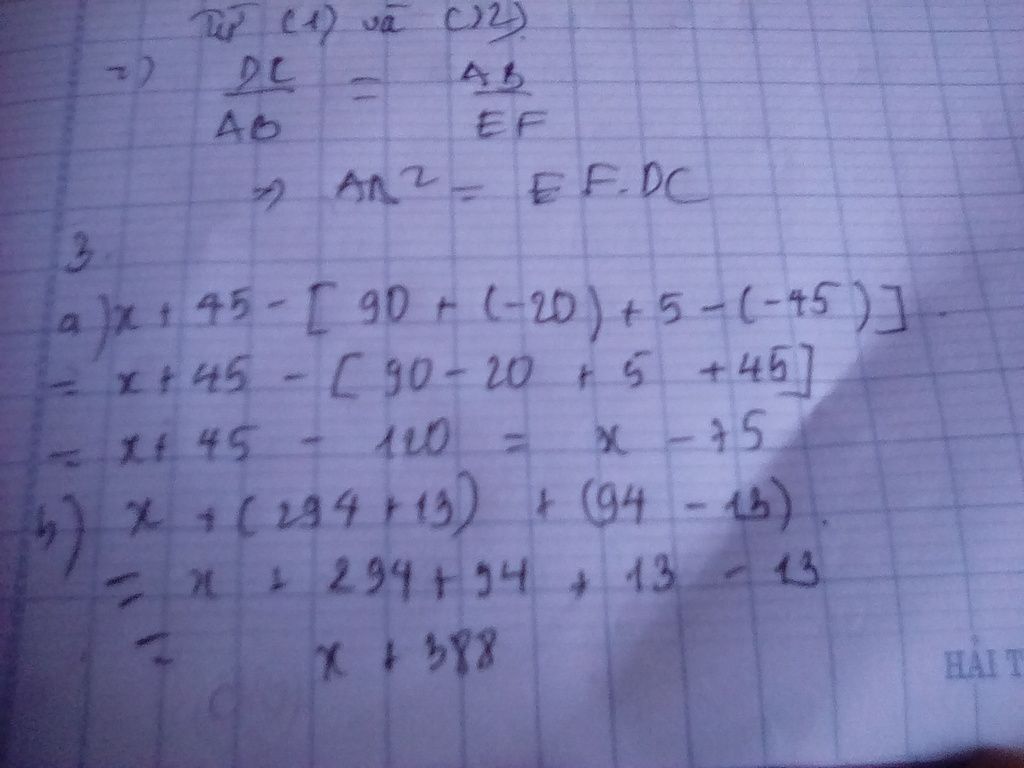 Từ (1) và (2)
=> DC/AB = AB/EF
=> AB² = EF.DC
3.
a) x + 45 - [90 + (-20) + 5 - (-45)].
= x + 45 - [90 - 20 + 5 + 45]
= x + 45 - 120 = x - 75
b) x + (294 + 13) + (94 - 13).
= x + 294 + 94 + 13 - 13
= x + 388
HẢI T